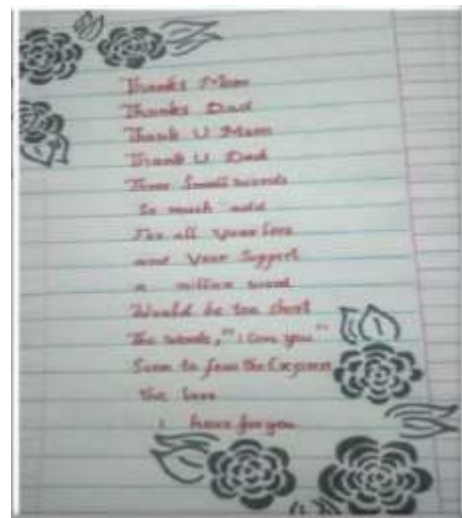 Thanks Mom
Thanks Dad
Thank U Mom
Thank U Dad
Three Small words
So much add
For all your love
and Your Support
a million word
Would be too short
The words, "I Love you"
Seem to few the Express
the love
I have for you